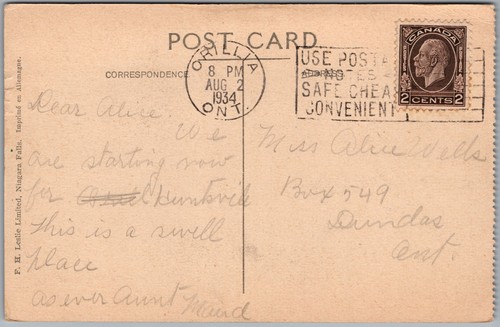 POST CARD
CORRESPONDENCE.
ORILLIA
8 PM
AUG 2
1934
ONT.
USE POSTAL
NOTES
SAFE CHEAP
CONVENIENT
CANADA
2 CENTS 2
Dear Alice. We
are starting now
for Huntsville
This is a swell
place
as ever Aunt Maud
Miss Alice Wells
Box 549
Dundas
Ont.
F. H. Leslie Limited, Niagara Falls. Imprimé en Allemagne.